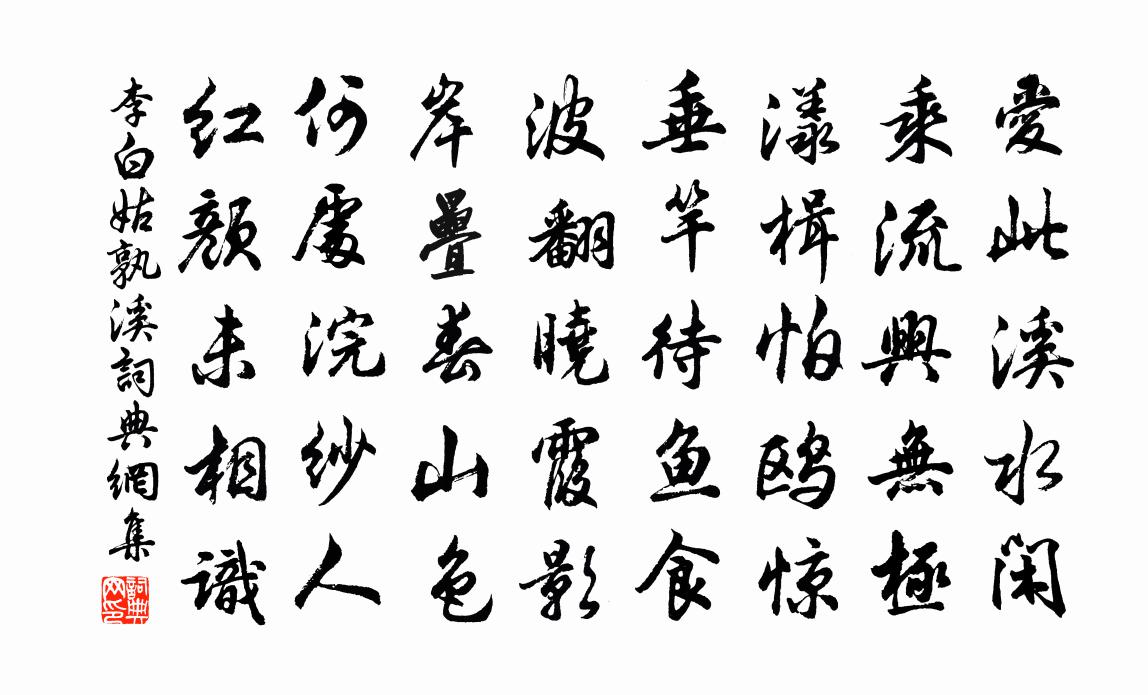 愛此溪水閑
乘流興無極
漾楫怕鸥惊
垂竿待鱼食
波翻曉霞影
岸疊春山色
何處浣纱人
红顏未相識
李白姑孰溪詞典網集
詞典
网印